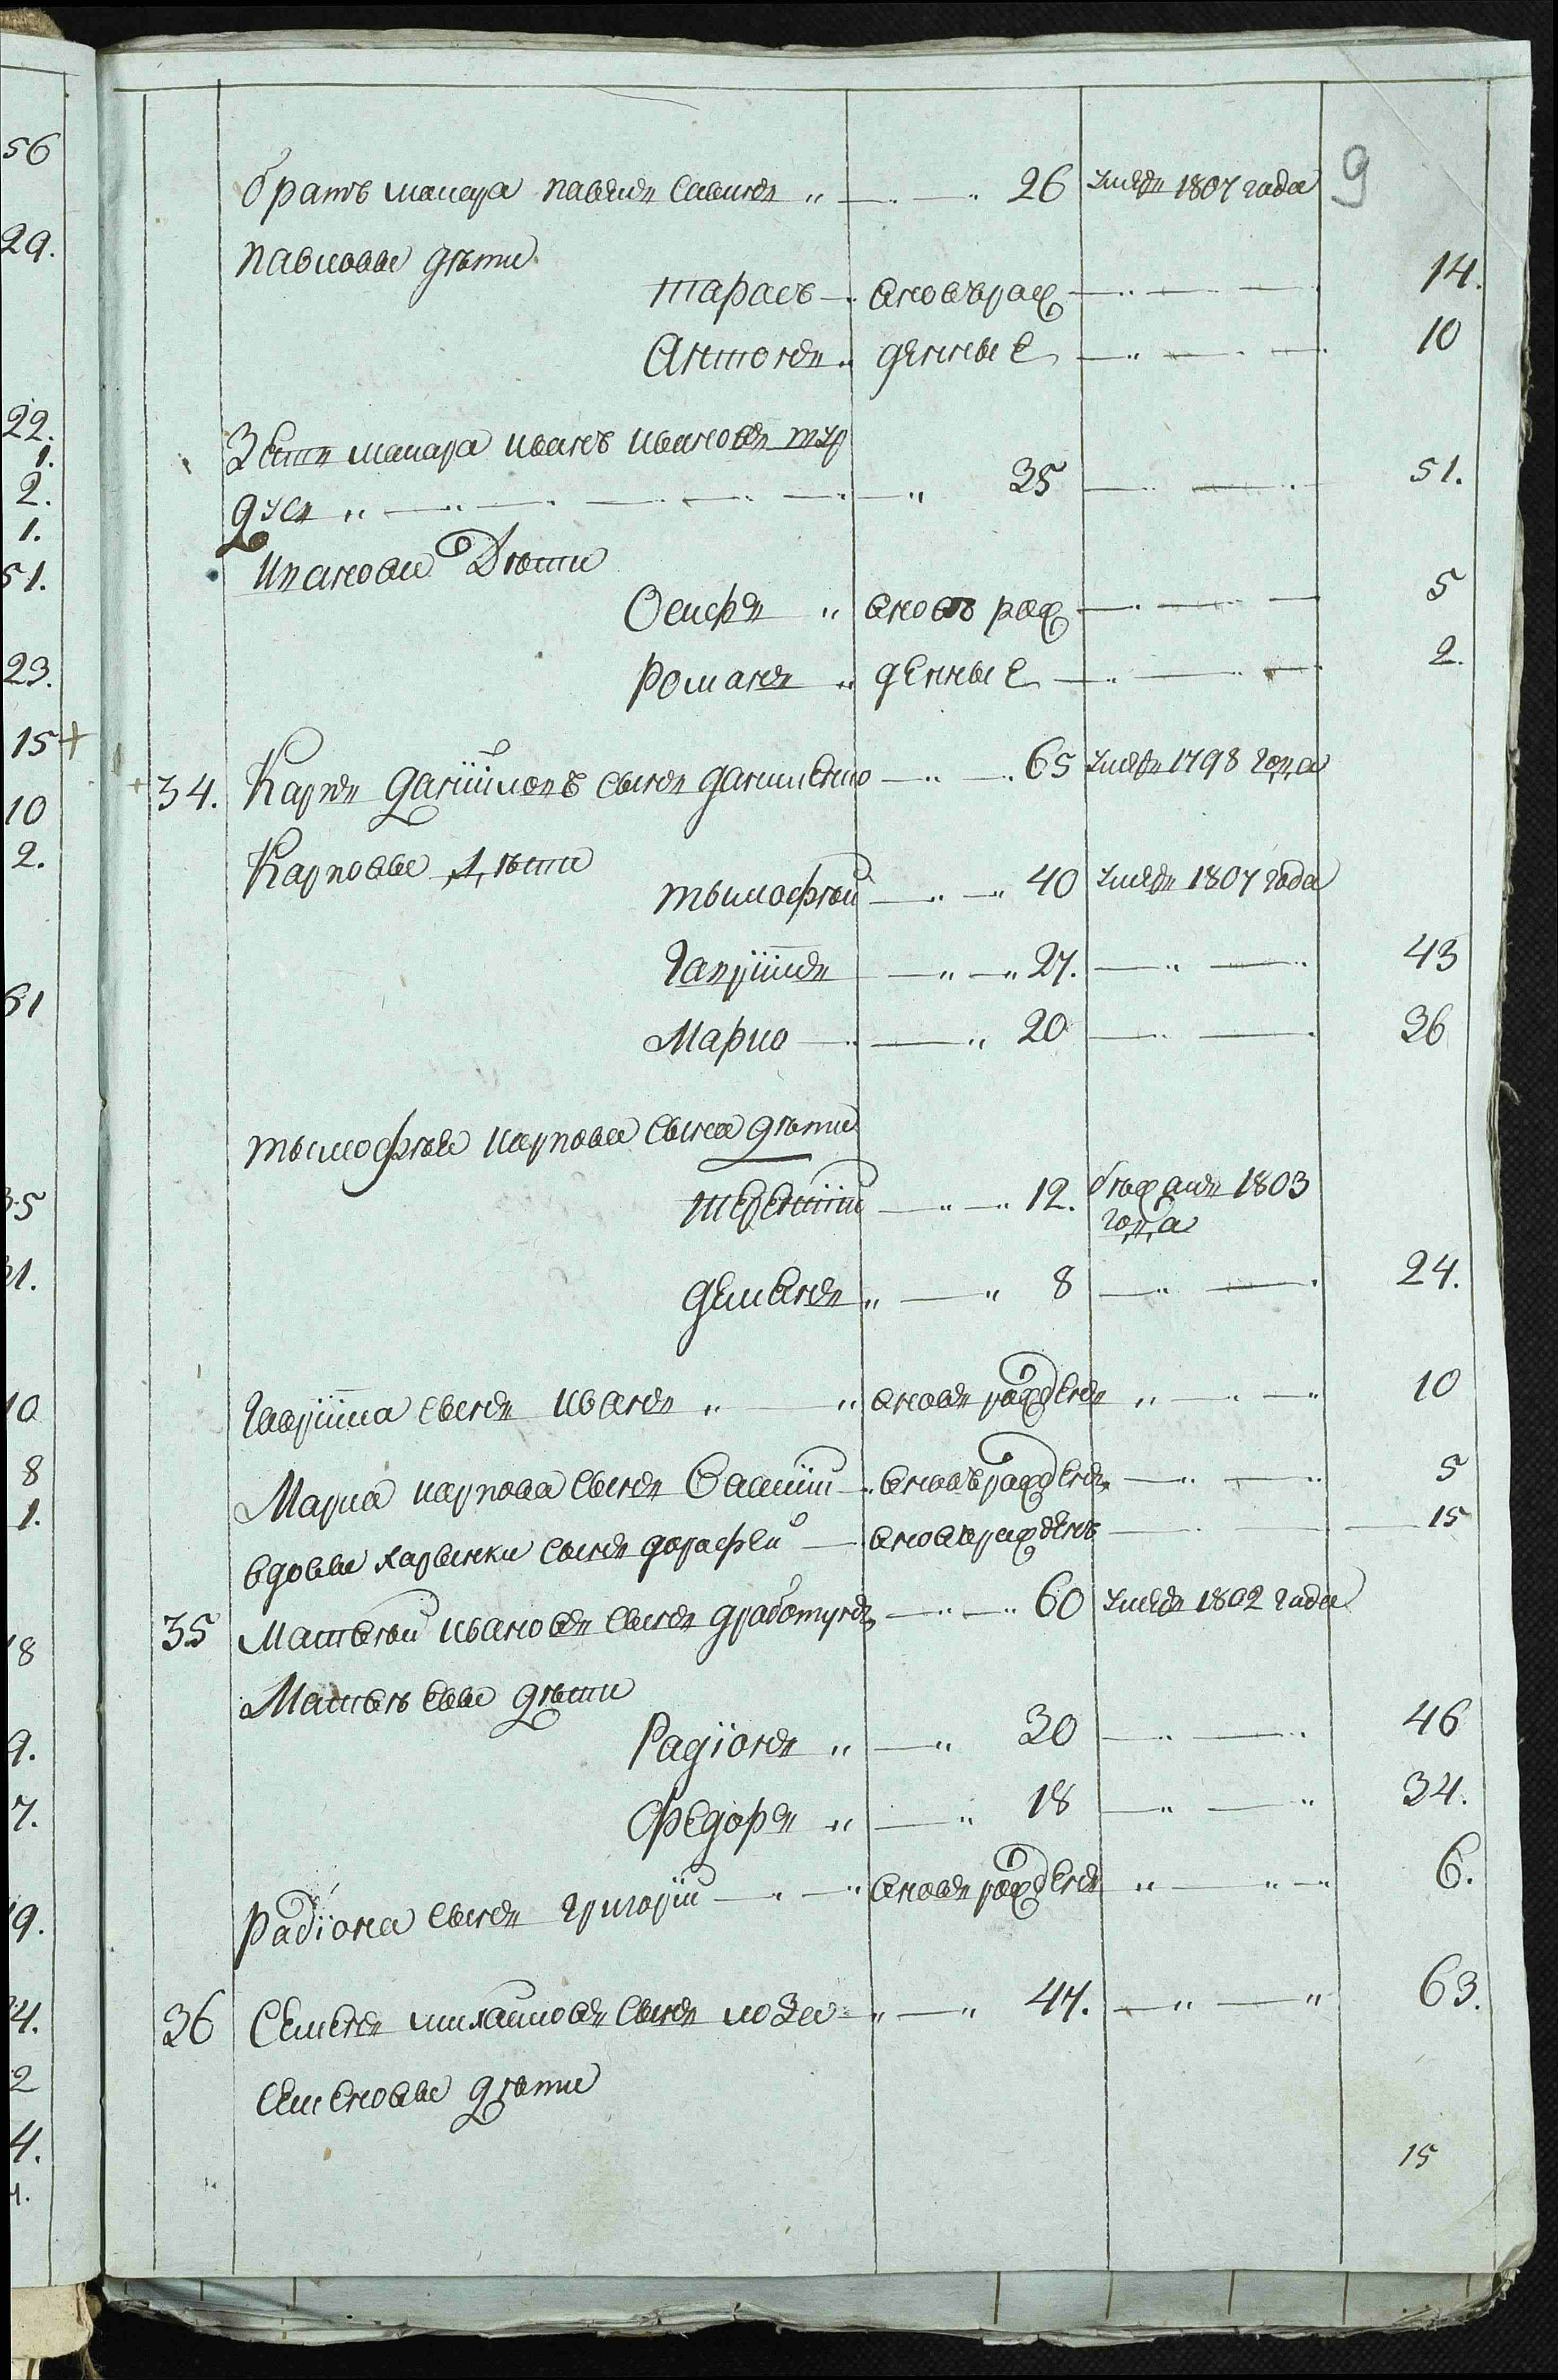 9
братъ макара павелъ савинъ 26 умеръ 1807 года
павловы дѣти
тарасъ вновьрож 14.
Антонъ денные 10
Зеть макара иванъ ивановъ
35 51.
Ивановы Дѣти
Осифъ вновь рож 5
Романъ денные 2.
34. Карпъ даниловъ сынъ даниленко 65 умеръ 1798 года
Карповы дѣти
тымофѣй 40 умеръ 1807 года
Гаврiилъ 27. 43
Марко 20 36
тымофѣя карпова сына дѣти
терентiй 12. бѣжалъ 1803
года
демянъ 8 24.
Гаврiила сынъ иванъ вновь рожденъ 10
Марка карпова сынъ Василiй вновьрожденъ 5
вдовы сынъ дорофей вновьрожденъ 15
35 Матвѣй ивановъ сынъ 60 умеръ 1802 года
Матвѣевы дѣти
Радiонъ 30 46
Федоръ 18 34.
Радiона сынъ григорiй вновь рожденъ 6.
36 Семенъ михайловъ сынъ лоза 47. 63.
Семеновы дѣти
15
56
29.
22.
1.
2.
1.
51.
23.
15
10
2.
61
35
31.
10
8
1.
18
9.
7.
19.
4.
2
4.